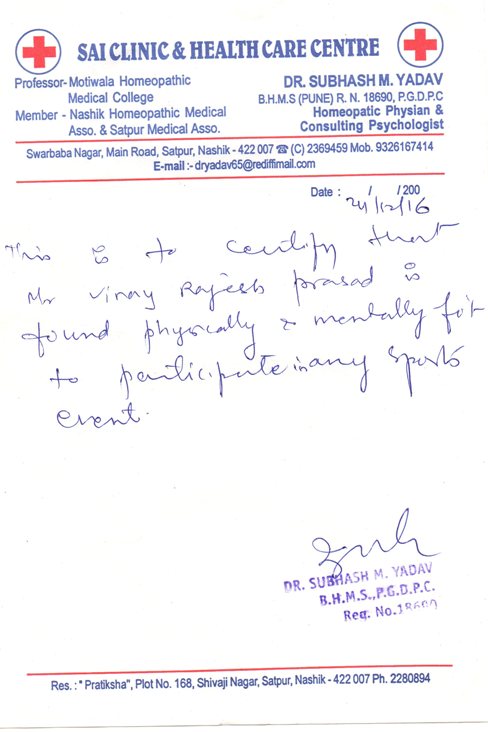 SAI CLINIC & HEALTH CARE CENTRE
Professor- Motiwala Homeopathic
Medical College
Member - Nashik Homeopathic Medical
Asso. & Satpur Medical Asso.
DR. SUBHASH M. YADAV
B.H.M.S (PUNE) R. N. 18690, P.G.D.P.C
Homeopathic Physian &
Consulting Psychologist
Swarbaba Nagar, Main Road, Satpur, Nashik - 422 007 ☎ (C) 2369459 Mob. 9326167414
E-mail :- dryadav65@rediffimail.com
Date : / /200
24/12/16
This is to certify that
Mr Vinay Rajesh prasad is
found physically & mentally fit
to participate in any sports
event.
DR. SUBHASH M. YADAV
B.H.M.S.,P.G.D.P.C.
Reg. No.18690
Res. : " Pratiksha", Plot No. 168, Shivaji Nagar, Satpur, Nashik - 422 007 Ph. 2280894